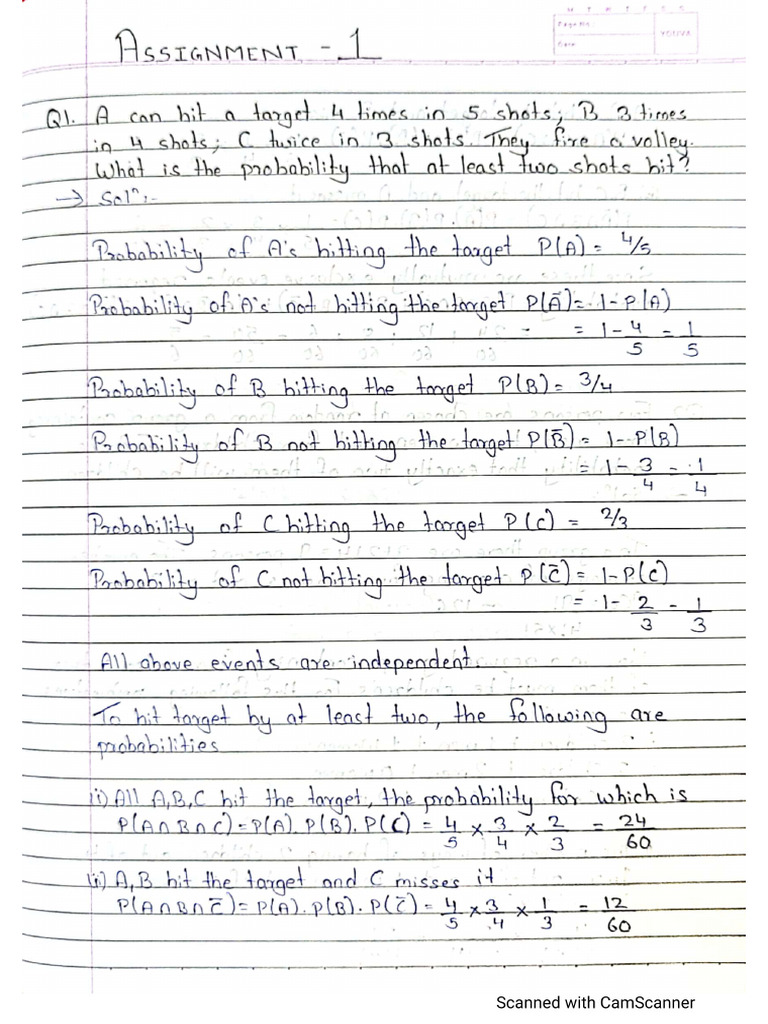 ASSIGNMENT - 1
Page No:
Date
YOUVA
Q1. A can hit a target 4 times in 5 shots; B 3 times
in 4 shots; C twice in 3 shots. They fire a volley.
What is the probability that at least two shots hit?
→ Solⁿ:-
Probability of A's hitting the target P(A) = 4/5
Probability of A's not hitting the target P(Ā) = 1 - P(A)
= 1 - 4/5 = 1/5
Probability of B hitting the target P(B) = 3/4
Probability of B not hitting the target P(B̄) = 1 - P(B)
= 1 - 3/4 = 1/4
Probability of C hitting the target P(C) = 2/3
Probability of C not hitting the target P(C̄) = 1 - P(C)
= 1 - 2/3 = 1/3
All above events are independent.
To hit target by at least two, the following are
probabilities
(i) All A,B,C hit the target, the probability for which is
P(A∩B∩C) = P(A). P(B). P(C) = 4/5 × 3/4 × 2/3 = 24/60
(ii) A,B hit the target and C misses it
P(A∩B∩C̄) = P(A). P(B). P(C̄) = 4/5 × 3/4 × 1/3 = 12/60
Scanned with CamScanner